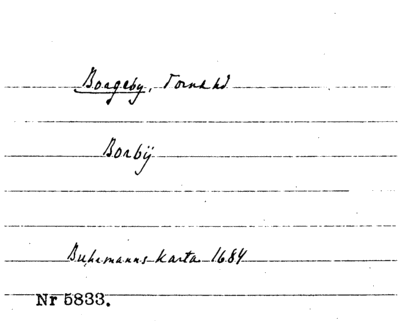 Borgeby, Torna hd
Borbÿ
Buhrmanns karta 1684
Nr 5833.